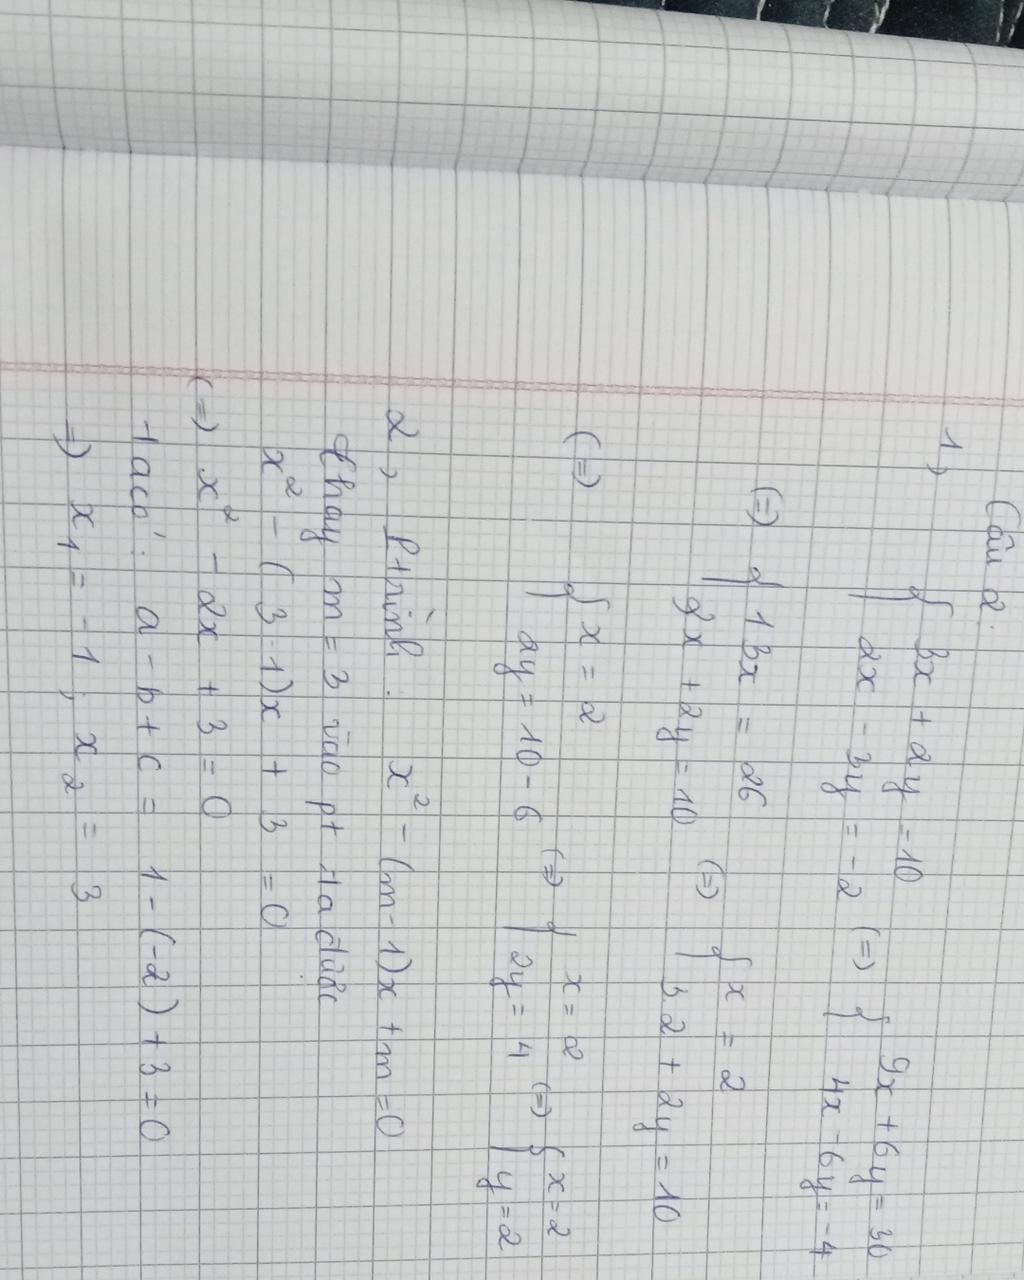 Câu 2:
1, { 3x + 2y = 10
2x - 3y = -2 (=) { 9x + 6y = 30
4x - 6y = -4
(=) { 13x = 26
2x + 2y = 10 (=) { x = 2
3.2 + 2y = 10
(=) { x = 2
2y = 10 - 6 (=) { x = 2
2y = 4 (=) { x = 2
y = 2
2, ptrình: x² - (m-1)x + m = 0
thay m = 3 vào pt ta được
x² - (3-1)x + 3 = 0
(=) x² - 2x + 3 = 0
Ta có: a - b + c = 1 - (-2) + 3 = 0
=) x₁ = -1 ; x₂ = 3